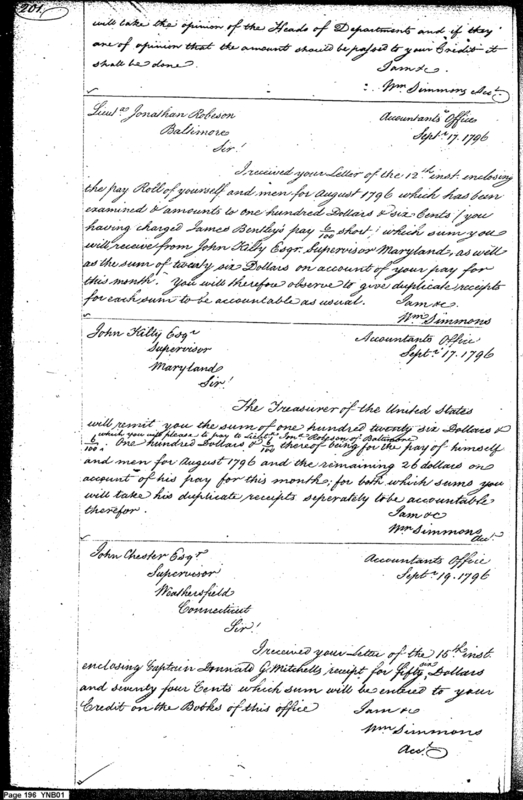 201
will take the opinion of the Heads of Departments and if they
are of opinion that the amount should be passed to your Credit it
shall be done. I am &c.
Wm Simmons Acct.
Lieut. Jonathan Robeson Accountants Office
Baltimore Sept. 17. 1796
Sir!
I received your Letter of the 12th inst. enclosing
the pay Roll of yourself and men for August 1796 which has been
examined & amounts to one hundred Dollars & six Cents / you
having charged James Bentley's pay 6/100 short / which sum you
will receive from John Kilty Esqr. Supervisor Maryland, as well
as the sum of twenty six Dollars on account of your pay for
this month. You will therefore observe to give duplicate receipts
for each sum to be accountable as usual. I am &c.
Wm Simmons
John Kilty Esqr Accountants Office
Supervisor Sept. 17. 1796
Maryland
Sir!
The Treasurer of the United States
will remit you the sum of one hundred twenty six Dollars &
which you will please to pay to Lieut. Jona. Robeson of Baltimore
6/100. One hundred Dollars & 6/100 thereof being for the pay of himself
and men for August 1796 and the remaining 26 dollars on
account of his pay for this month; for both which sums you
will take his duplicate receipts seperately to be accountable
therefor. I am &c
Wm Simmons
Acct.
John Chester Esqr Accountants Office
Supervisor Sept. 19. 1796
Weathersfield
Connecticut
Sir!
I received your Letter of the 15th inst.
enclosing Captain Donnald G. Mitchells receipt for fifty six Dollars
and seventy four Cents which sum will be entered to your
Credit on the Books of this office I am &c
Wm Simmons
Acct.
Page 196 YNB01